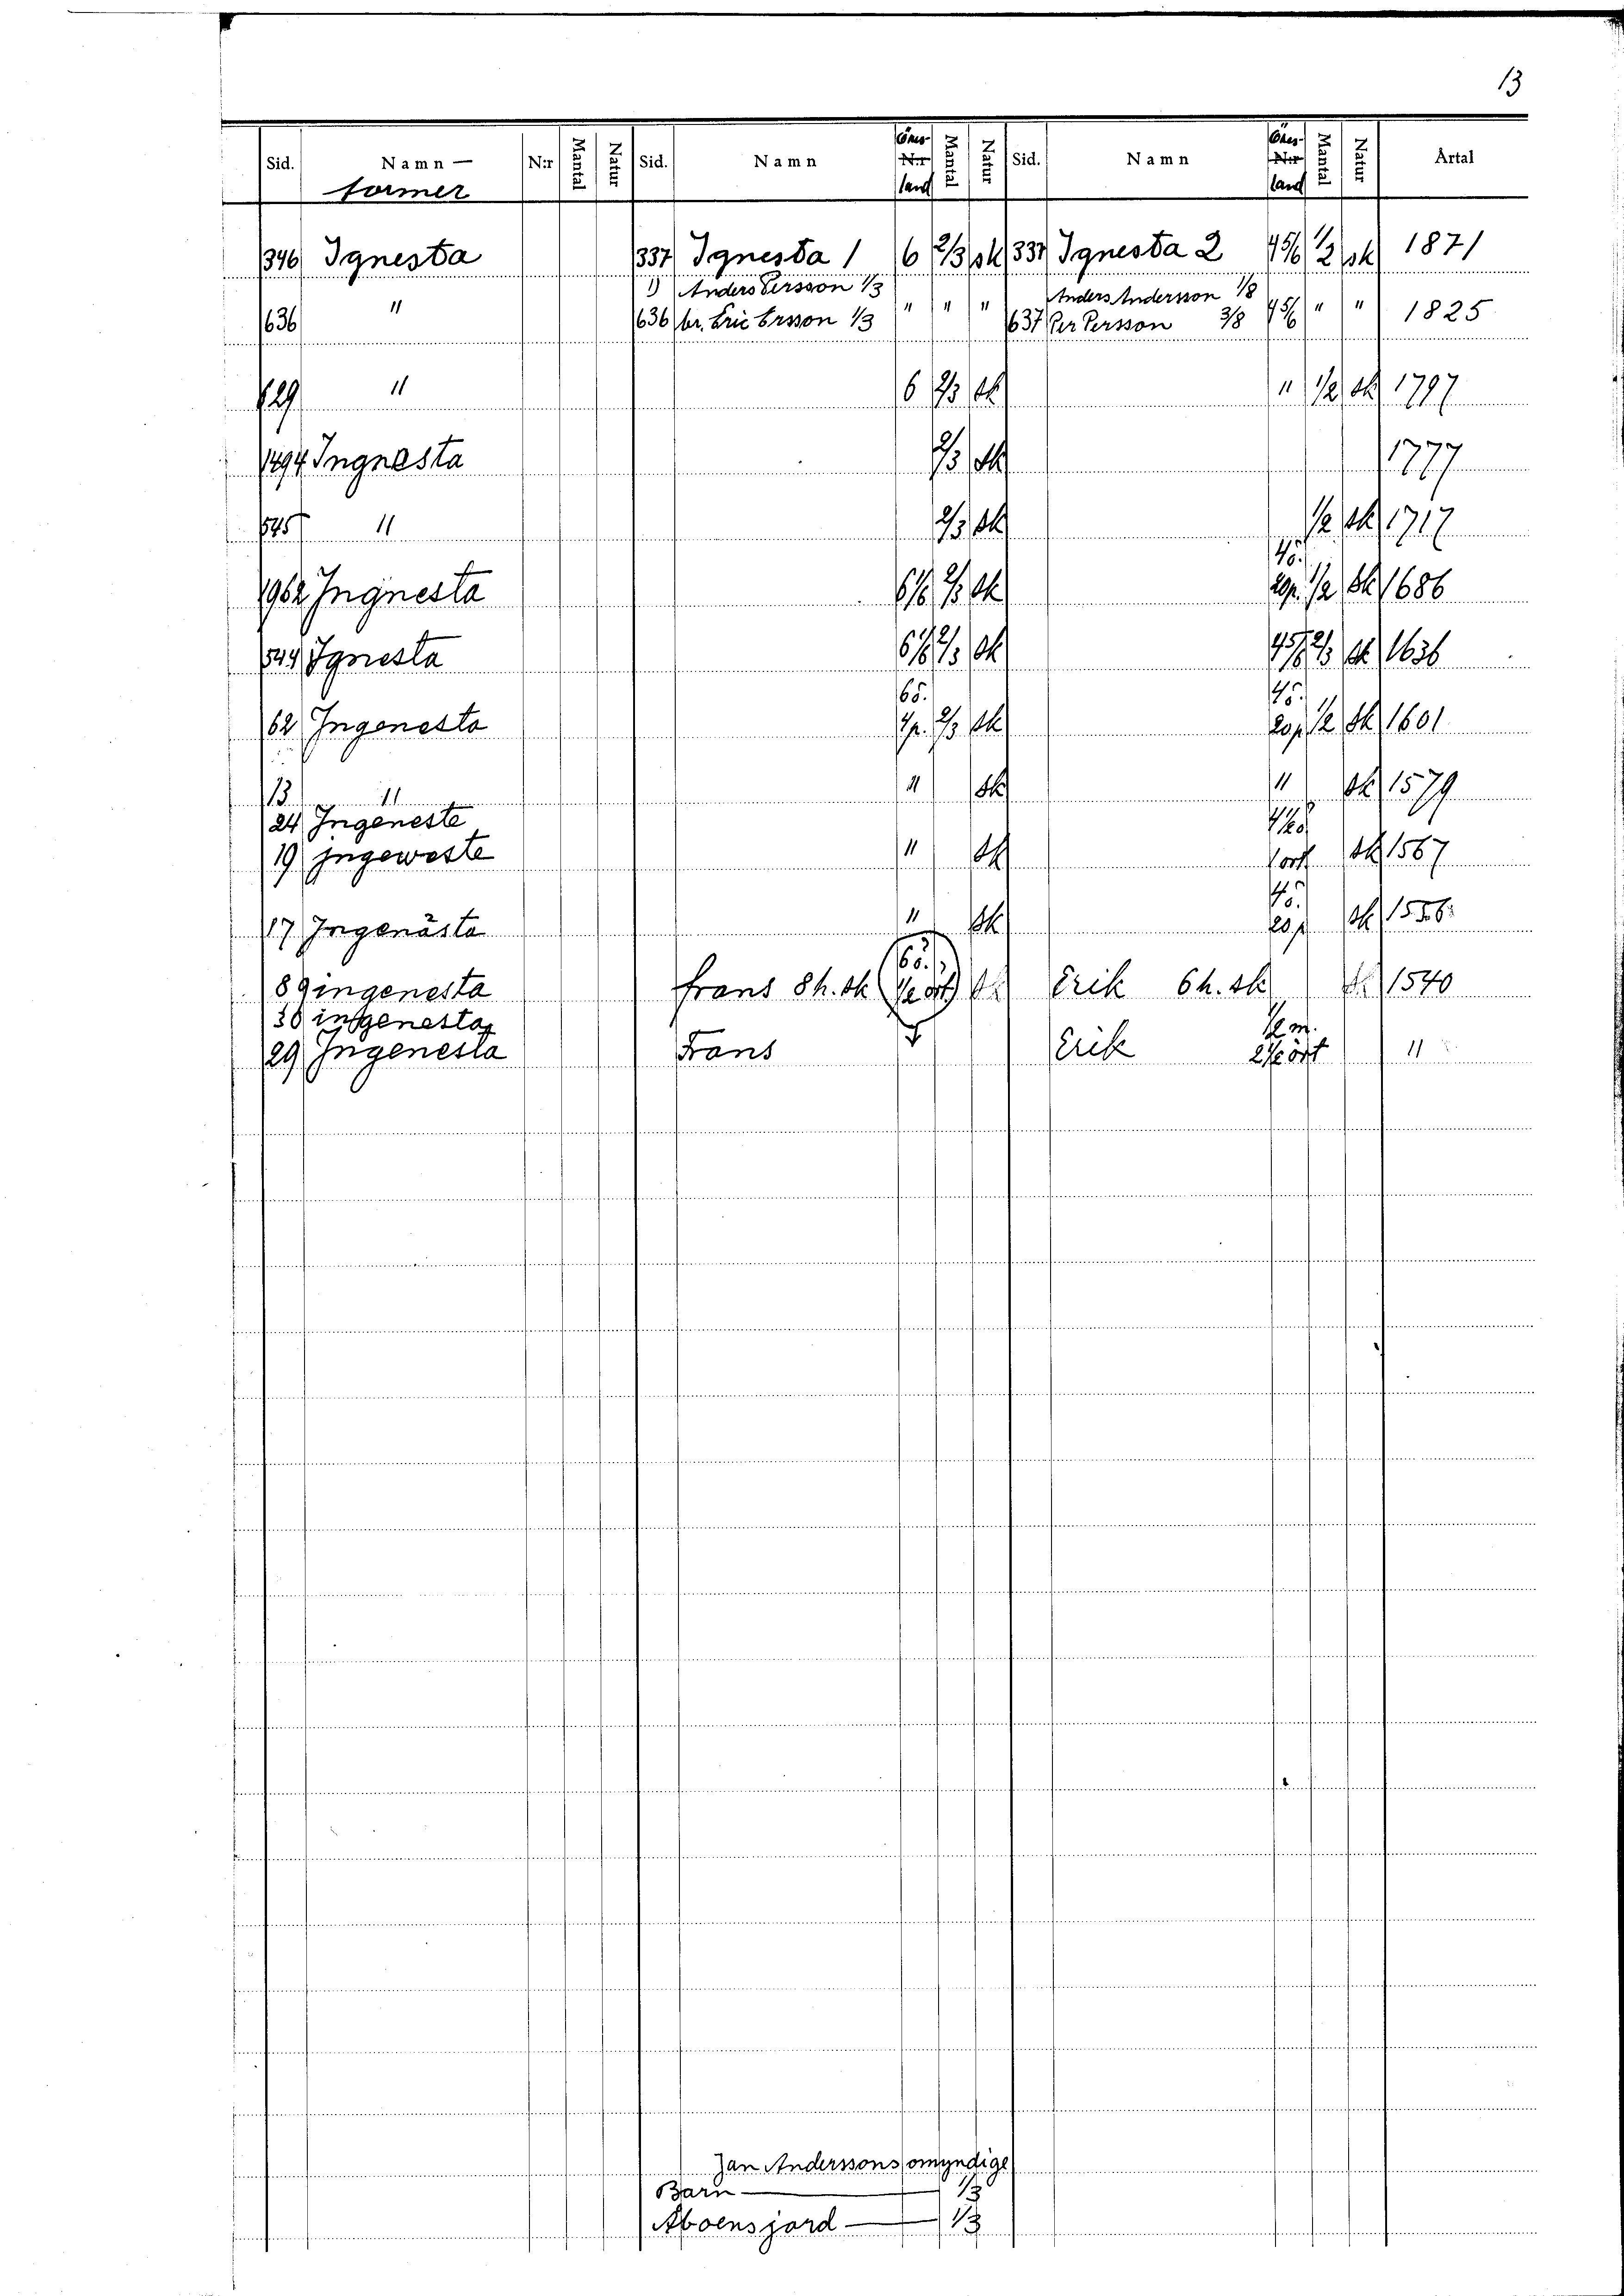 13
Sid. Namn— former N:r Mantal Natur Sid. Namn Öres- N:r land Mantal Natur Sid. Namn Öres- N:r land Mantal Natur Årtal
346 Ignesta 337 Ignesta 1 6 2/3 sk 337 Ignesta 2 4 5/6 1/2 sk 1871
1) Anders Persson 1/3 Anders Andersson 1/8
636 " 636 br. Eric Ersson 1/3 " " " 637 Per Persson 3/8 4 5/6 " " 1825
629 " 6 2/3 sk " 1/2 sk 1797
1494 Ingnesta 2/3 sk 1777
545 " 2/3 sk 1/2 sk 1717
4ö.
1962 Ingnesta 6 1/6 2/3 sk 20p. 1/2 sk 1686
544 Ignesta 6 1/6 2/3 sk 4 5/6 2/3 sk 1636
6ö. 4ö.
62 Ingenesta 4p. 2/3 sk 20p 1/2 sk 1601
13 " " sk " sk 1579
24 Ingeneste 4 1/2ö
19 jngeweste " sk 1 ort sk 1567
4ö.
17 Ingenästa " sk 20p sk 1556
6ö.
89 ingenesta frans 8h. sk 1/2 ört sk Erik 6h. sk sk 1540
30 ingenesta 1/2 m.
29 Ingenesta Frans Erik 2 1/2 ört "
Jan Anderssons omyndige
Barn — 1/3
Åboens jord — 1/3